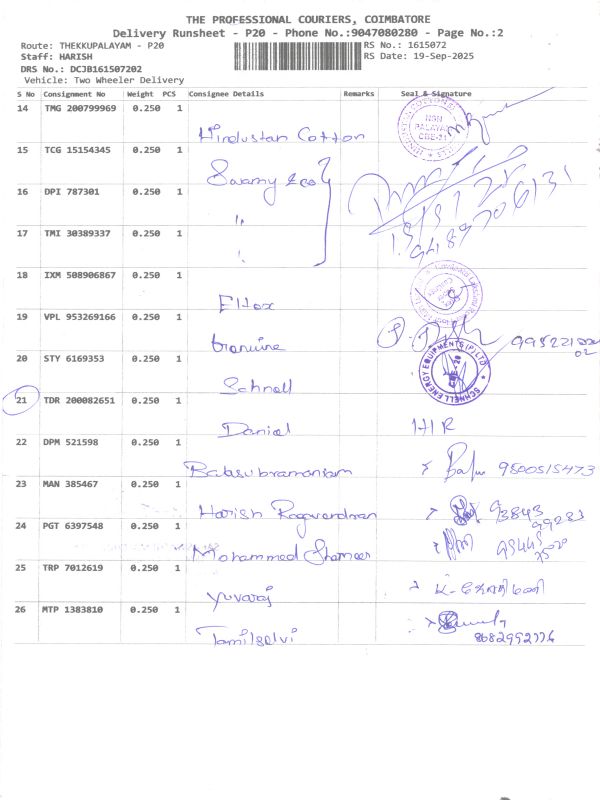 THE PROFESSIONAL COURIERS, COIMBATORE
Delivery Runsheet - P20 - Phone No.:9047080280 - Page No.:2
Route: THEKKUPALAYAM - P20
RS No.: 1615072
Staff: HARISH
RS Date: 19-Sep-2025
DRS No.: DCJB161507202
Vehicle: Two Wheeler Delivery
S No Consignment No Weight PCS Consignee Details Remarks Seal & Signature
14 TMG 200799969 0.250 1
Hindustan Cotton
NSN PALAYAM CBE-31
15 TCG 15154345 0.250 1
Swamy &co
16 DPI 787301 0.250 1
"
17 TMI 30389337 0.250 1
"
18 IXM 508906867 0.250 1
Eltex
19 VPL 953269166 0.250 1
20 STY 6169353 0.250 1
Schnell
SCHNELL ENERGY EQUIPMENTS (P) LTD CBE-20
21 TDR 200082651 0.250 1
Daniel H/R
22 DPM 521598 0.250 1
Balasubramaniam 9500515473
23 MAN 385467 0.250 1
Harish Ragavendran 93843
99283
24 PGT 6397548 0.250 1
Mohammed Shameer
25 TRP 7012619 0.250 1
Yuvaraj
26 MTP 1383810 0.250 1
Tamilselvi 8682992776